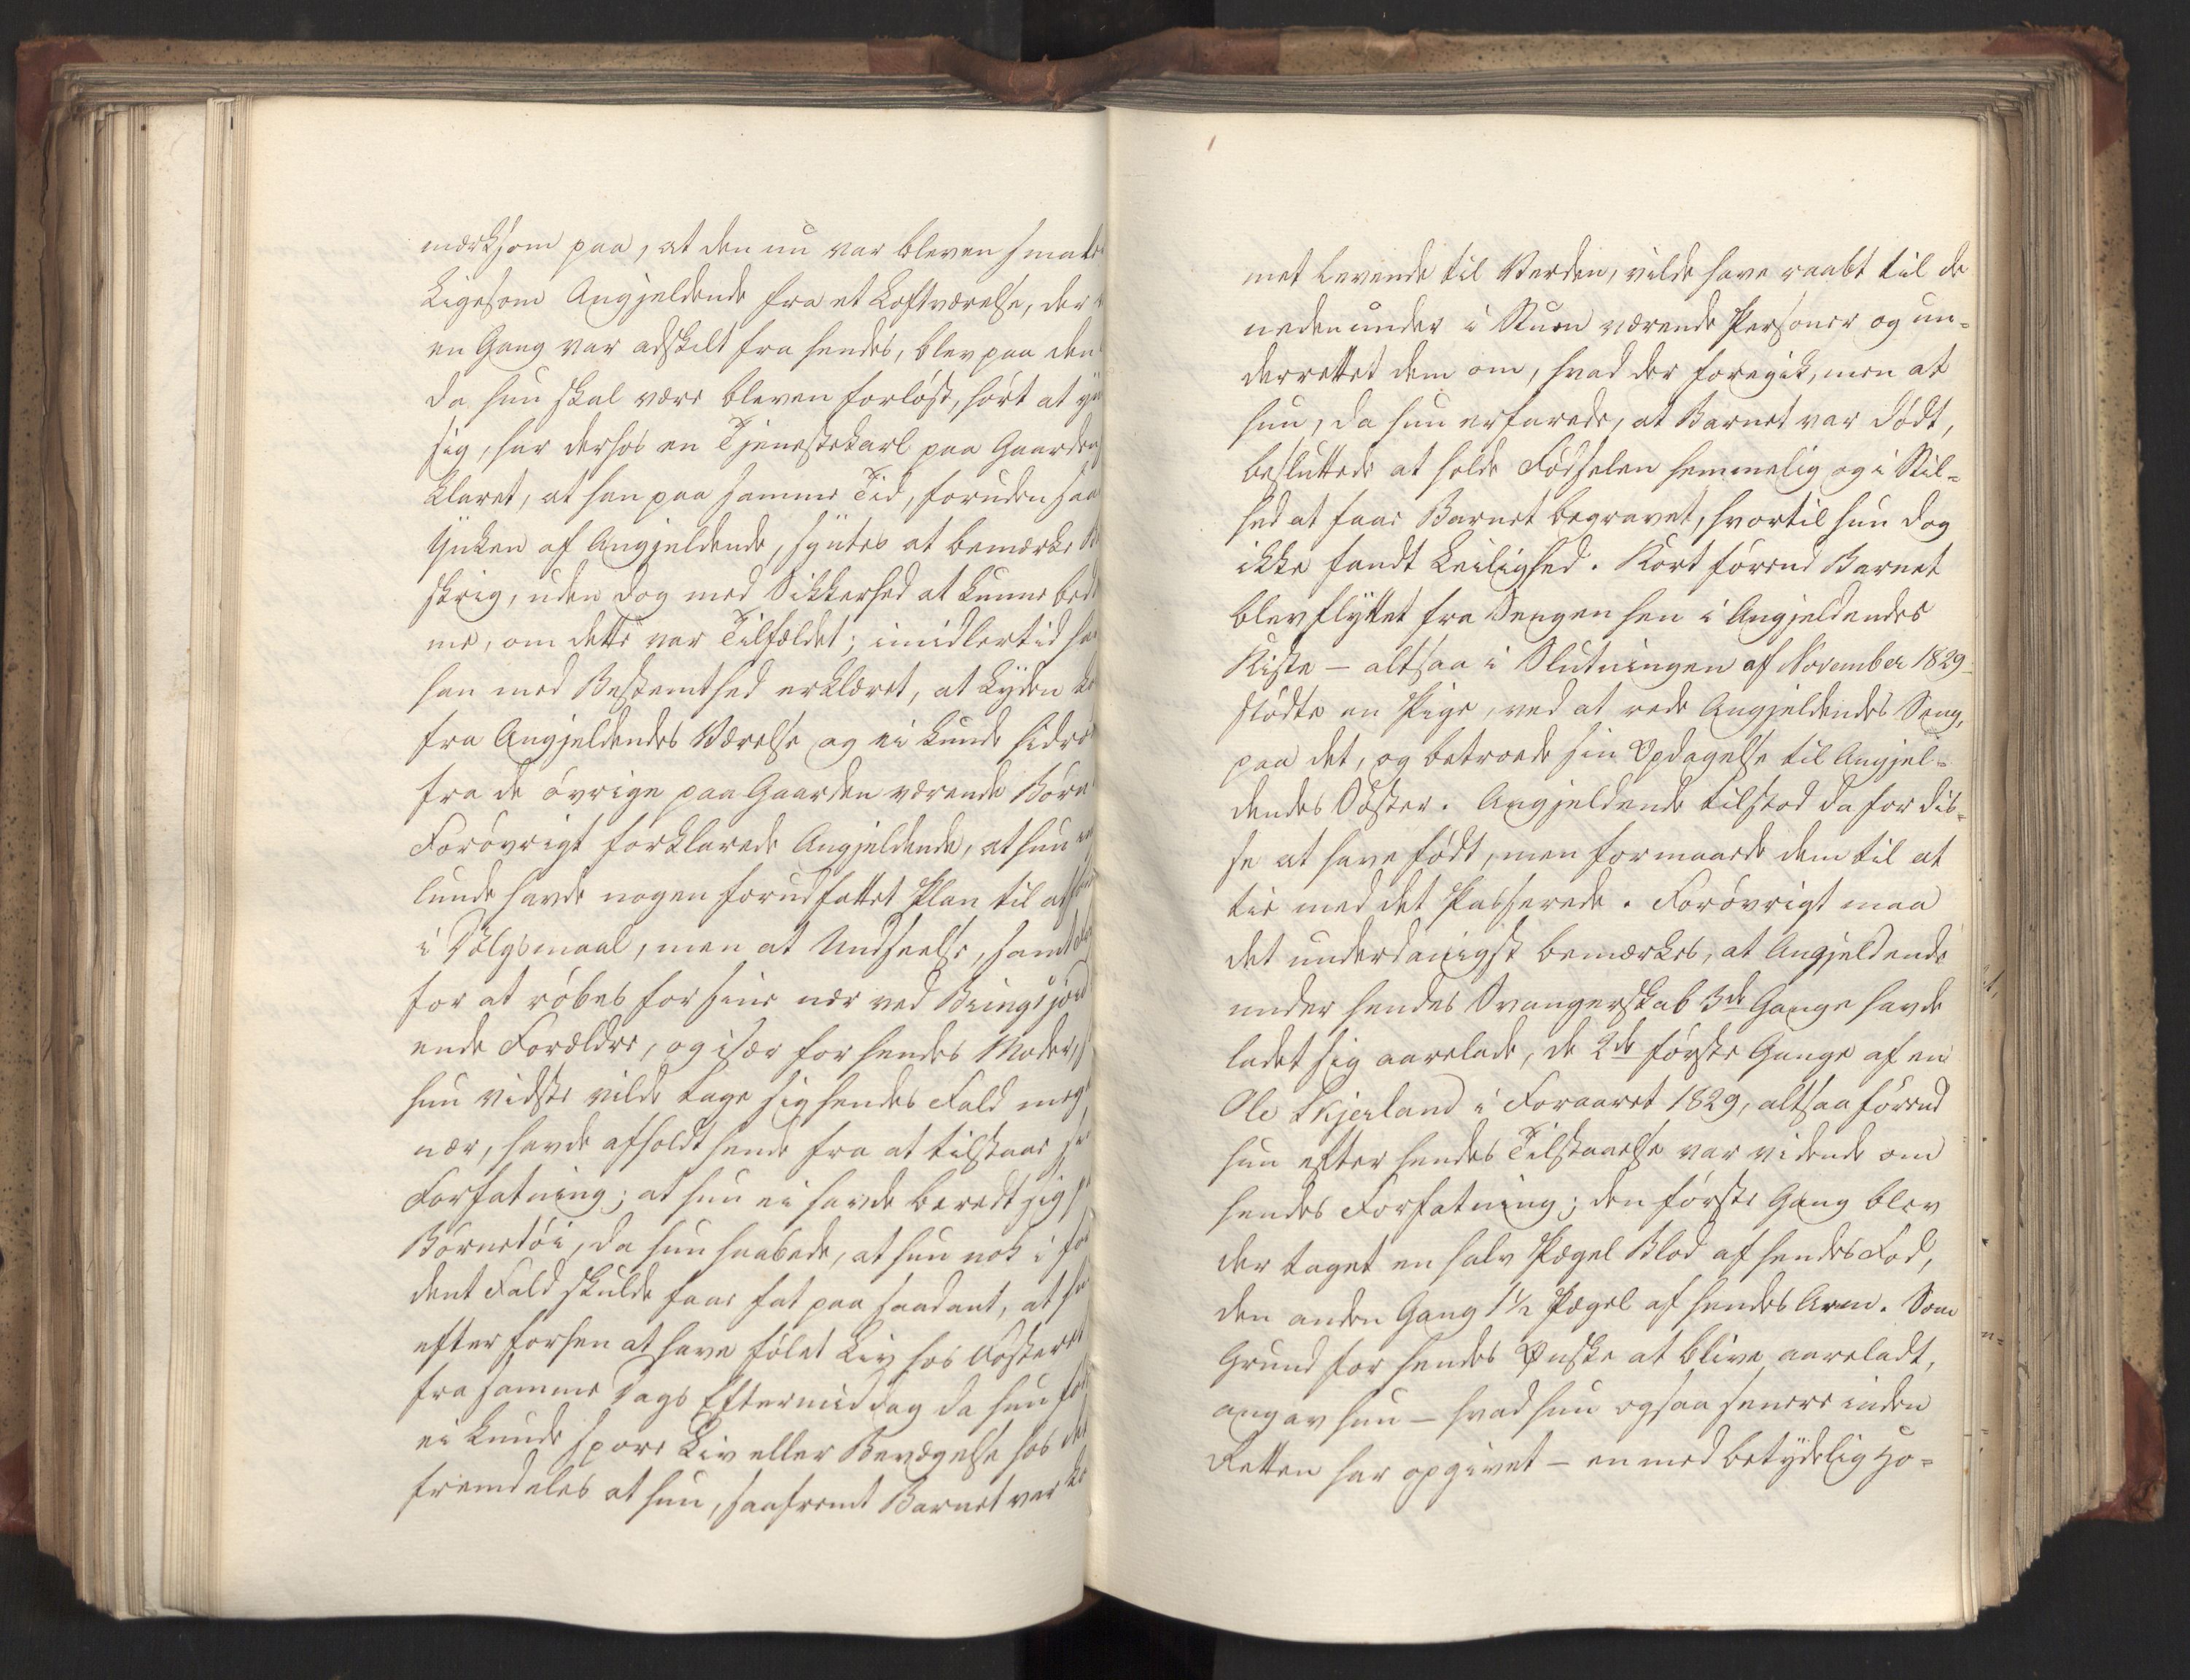 mærksom paa, at den nu var bleven smal
Ligesom Angjeldende fra et Loftværelse, der
en Gang var adskilt fra hendes, blev paa den
da hun skal være bleven forløst, hørt at yn
sig, har derhos en Tjenestekarl paa Gaarden
klaret, at han paa samme Tid, foruden saa
Ynken af Angjeldende, syntes at bemærke
skrig, uden dog med Sikkerhed at kunne bed
me, om dette var Tilfældet; imidlertid ha
han med Bestemthed erklæret, at Lyden ko
fra Angjeldendes Værelse og ei kunde hidrø
fra de øvrige paa Gaarden værende Børn
Forøvrigt forklarede Angjeldende, at hun in
lunde havde nogen forudfattet Plan til at
i Dølgsmaal, men at Undseelse, samt
for at røbes for sine nær ved Bringsjord
ende Forældre, og især for hendes Moder,
hun vidste vilde tage sig hendes Fald meg
nær, havde afholdt hende fra at tilstaae sin
Forfatning; at hun ei havde beredt sig p
Børnetøi, da hun haabede, at hun nok i for
dent Fald skulde faae fat paa saadant, at hun
efter forhen at have følet Liv hos Fosteret
fra samme Dags Eftermiddag da hun fød
ei kunde spore Liv eller Bevægelse hos det
fremdeles at hun, saafremt Barnet var ko
met levende til Verden, vilde have raabt til de
nedenunder i Stuen værende Personer og un-
derrettet dem om, hvad der foregik, men at
hun, da hun erfarede, at Barnet var dødt,
besluttede at holde Fødselen hemmelig og i Stil-
hed at faae Barnet begravet, hvortil hun dog
ikke fandt Leilighed. Kort førend Barnet
blev flyttet fra Sengen hen i Angjeldendes
Kiste – altsaa i Slutningen af November 1829 –
stødte en Pige, ved at rede Angjeldendes Seng,
paa det, og betroede sin Opdagelse til Angjel-
dendes Søster. Angjeldende tilstod da for dis-
se at have født, men formaaede dem til at
tie med det Passerede. Forøvrigt maa
det underdanigst bemærkes, at Angjeldende
under hendes Svangerskab 3de Gange havde
ladet sig aarelade, de 2de første Gange af en
Ole Skjerland i Foraaret 1829, altsaa førend
hun efter hendes Tilstaaelse var vidende om
hendes Forfatning; den første Gang blev
der taget en halv Pægel Blod af hendes Fod,
den anden Gang 1½ Pægel af hendes Arm. Som
Grund for hendes Ønske at blive aareladt,
angav hun – hvad hun ogsaa senere inden
Retten har opgivet – en med betydelig Ho-